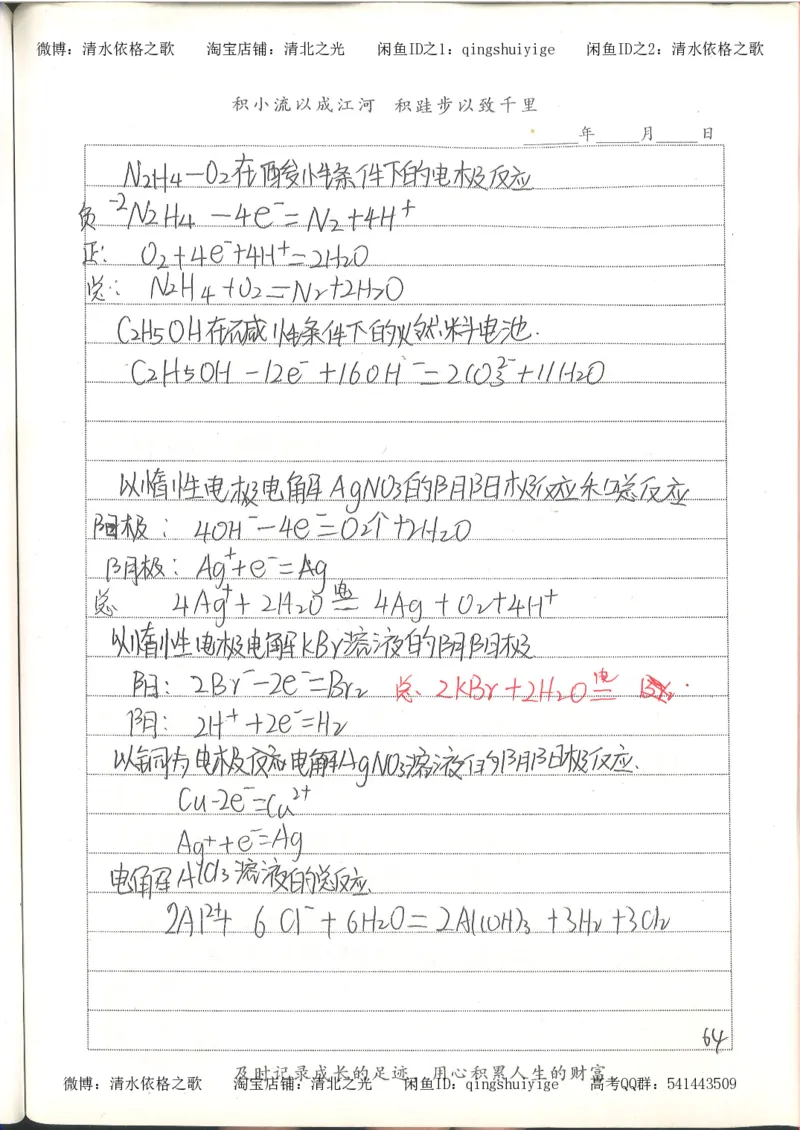 微博：清水依格之歌 淘宝店铺：清北之光 闲鱼ID之1：qingshuiyige 闲鱼ID之2：清水依格之歌
积小流以成江河 积跬步以致千里
年 月 日
N2H4-O2在酸性条件下的电极反应
负 -2 N2H4 -4e⁻=N2+4H⁺
正： O2+4e⁻+4H⁺=2H2O
总： N2H4+O2=N2+2H2O
C2H5OH在碱性条件下的燃料电池.
C2H5OH -12e⁻+16OH⁻=2CO3²⁻+11H2O
以惰性电极电解AgNO3的阴阳极反应和总反应
阳极： 4OH⁻-4e⁻=O2↑+2H2O
阴极： Ag⁺+e⁻=Ag
总 4Ag⁺+2H2O 电= 4Ag+O2+4H⁺
以惰性电极电解KBr溶液的阴阳极
阳： 2Br⁻-2e⁻=Br2 总. 2KBr+2H2O 电=
阴： 2H⁺+2e⁻=H2
以铜为电极反应电解AgNO3溶液的阴阳极反应.
Cu-2e⁻=Cu²⁺
Ag⁺+e⁻=Ag
电解AlCl3溶液的总反应.
2Al²⁺+6Cl⁻+6H2O=2Al(OH)3+3H2+3Cl2
64
及时记录成长的足迹 用心积累人生的财富
微博：清水依格之歌 淘宝店铺：清北之光 闲鱼ID：qingshuiyige 高考QQ群：541443509